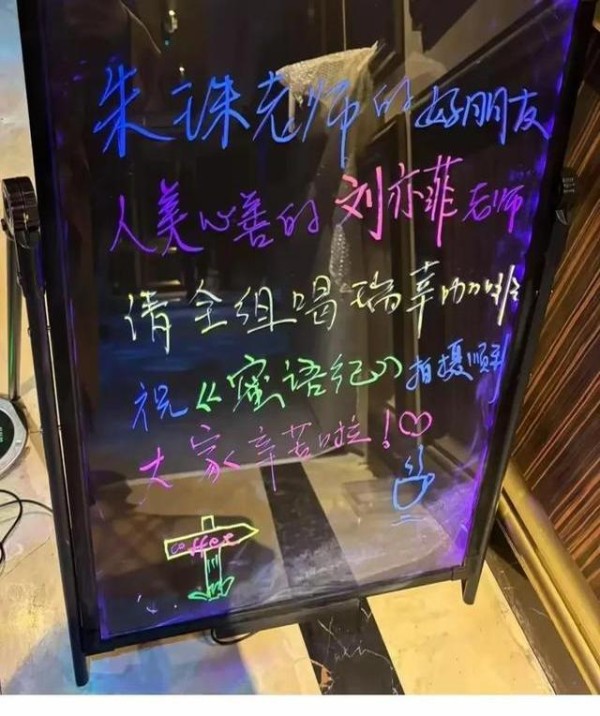 朱洙老师的好朋友
人美心善的刘亦菲老师
请全组喝瑞幸咖啡
祝《蜜语纪》拍摄顺利
大家辛苦啦!♡
coffee